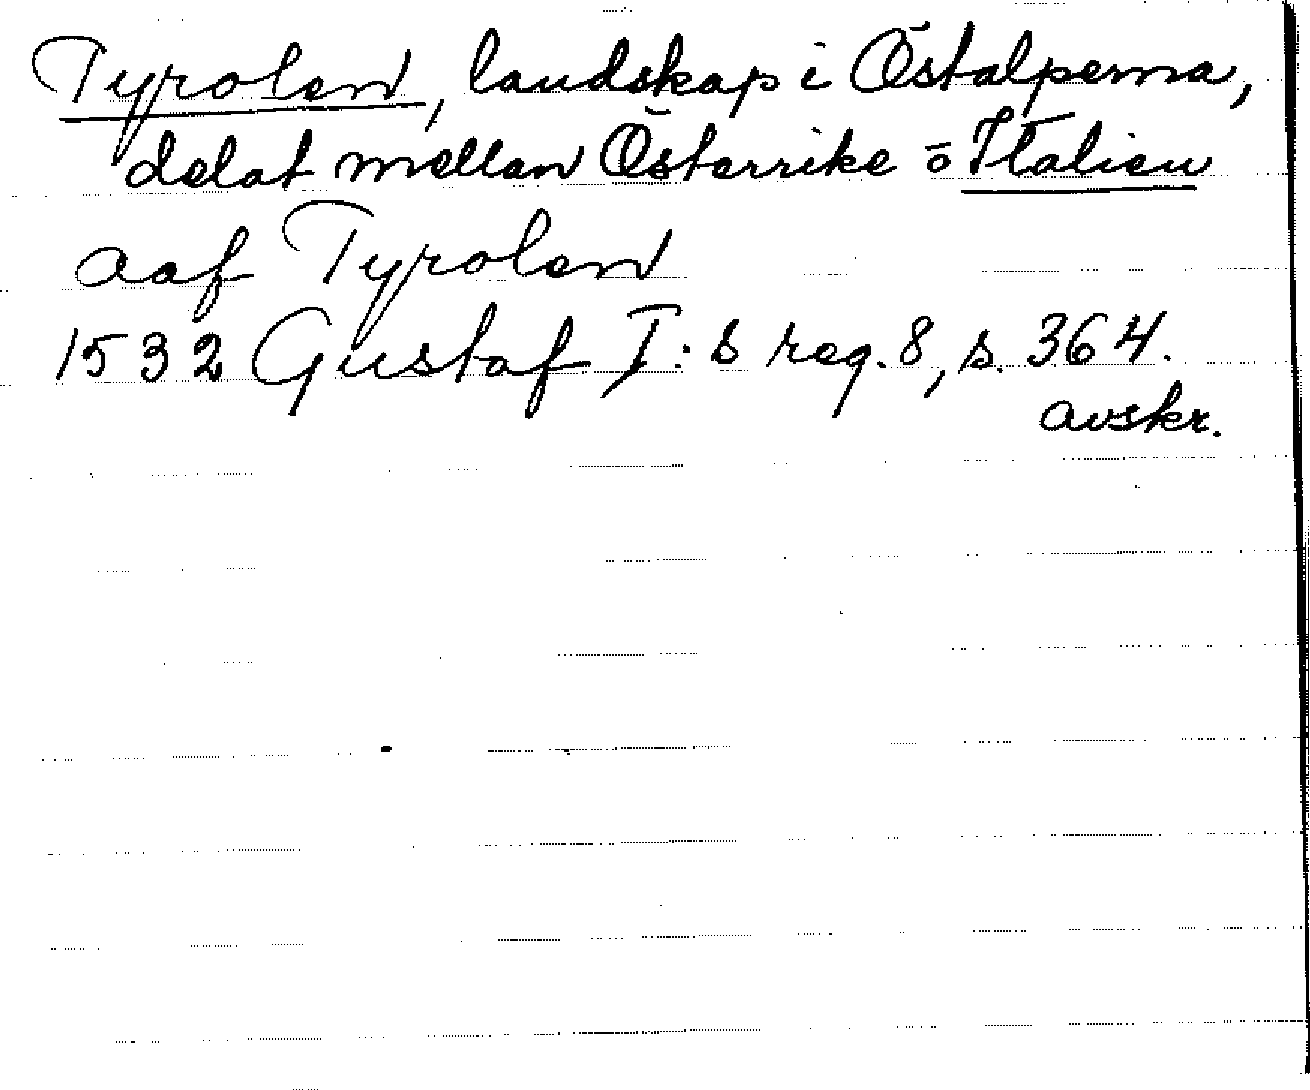 Tyrolen, landskap i Östalperna,
delat mellan Österrike o Italien
aaf Tyrolen
1532 Gustaf I:s reg. 8, s. 364.
avskr.